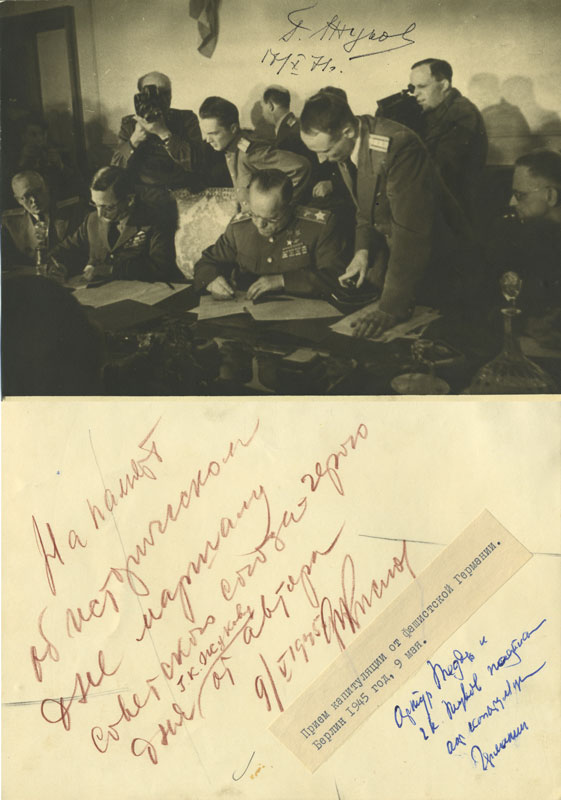 Г. Жуков
17/X 71г.
На память
об историческом
дне маршалу
советского союза-герою
Г К Жукову
дня от автора
9/V 1945
Прием капитуляции от фашистской Германии.
Берлин 1945 год, 9 мая.
Артур Теддер и
Г.К. Жуков
акт капитуляции
Германии